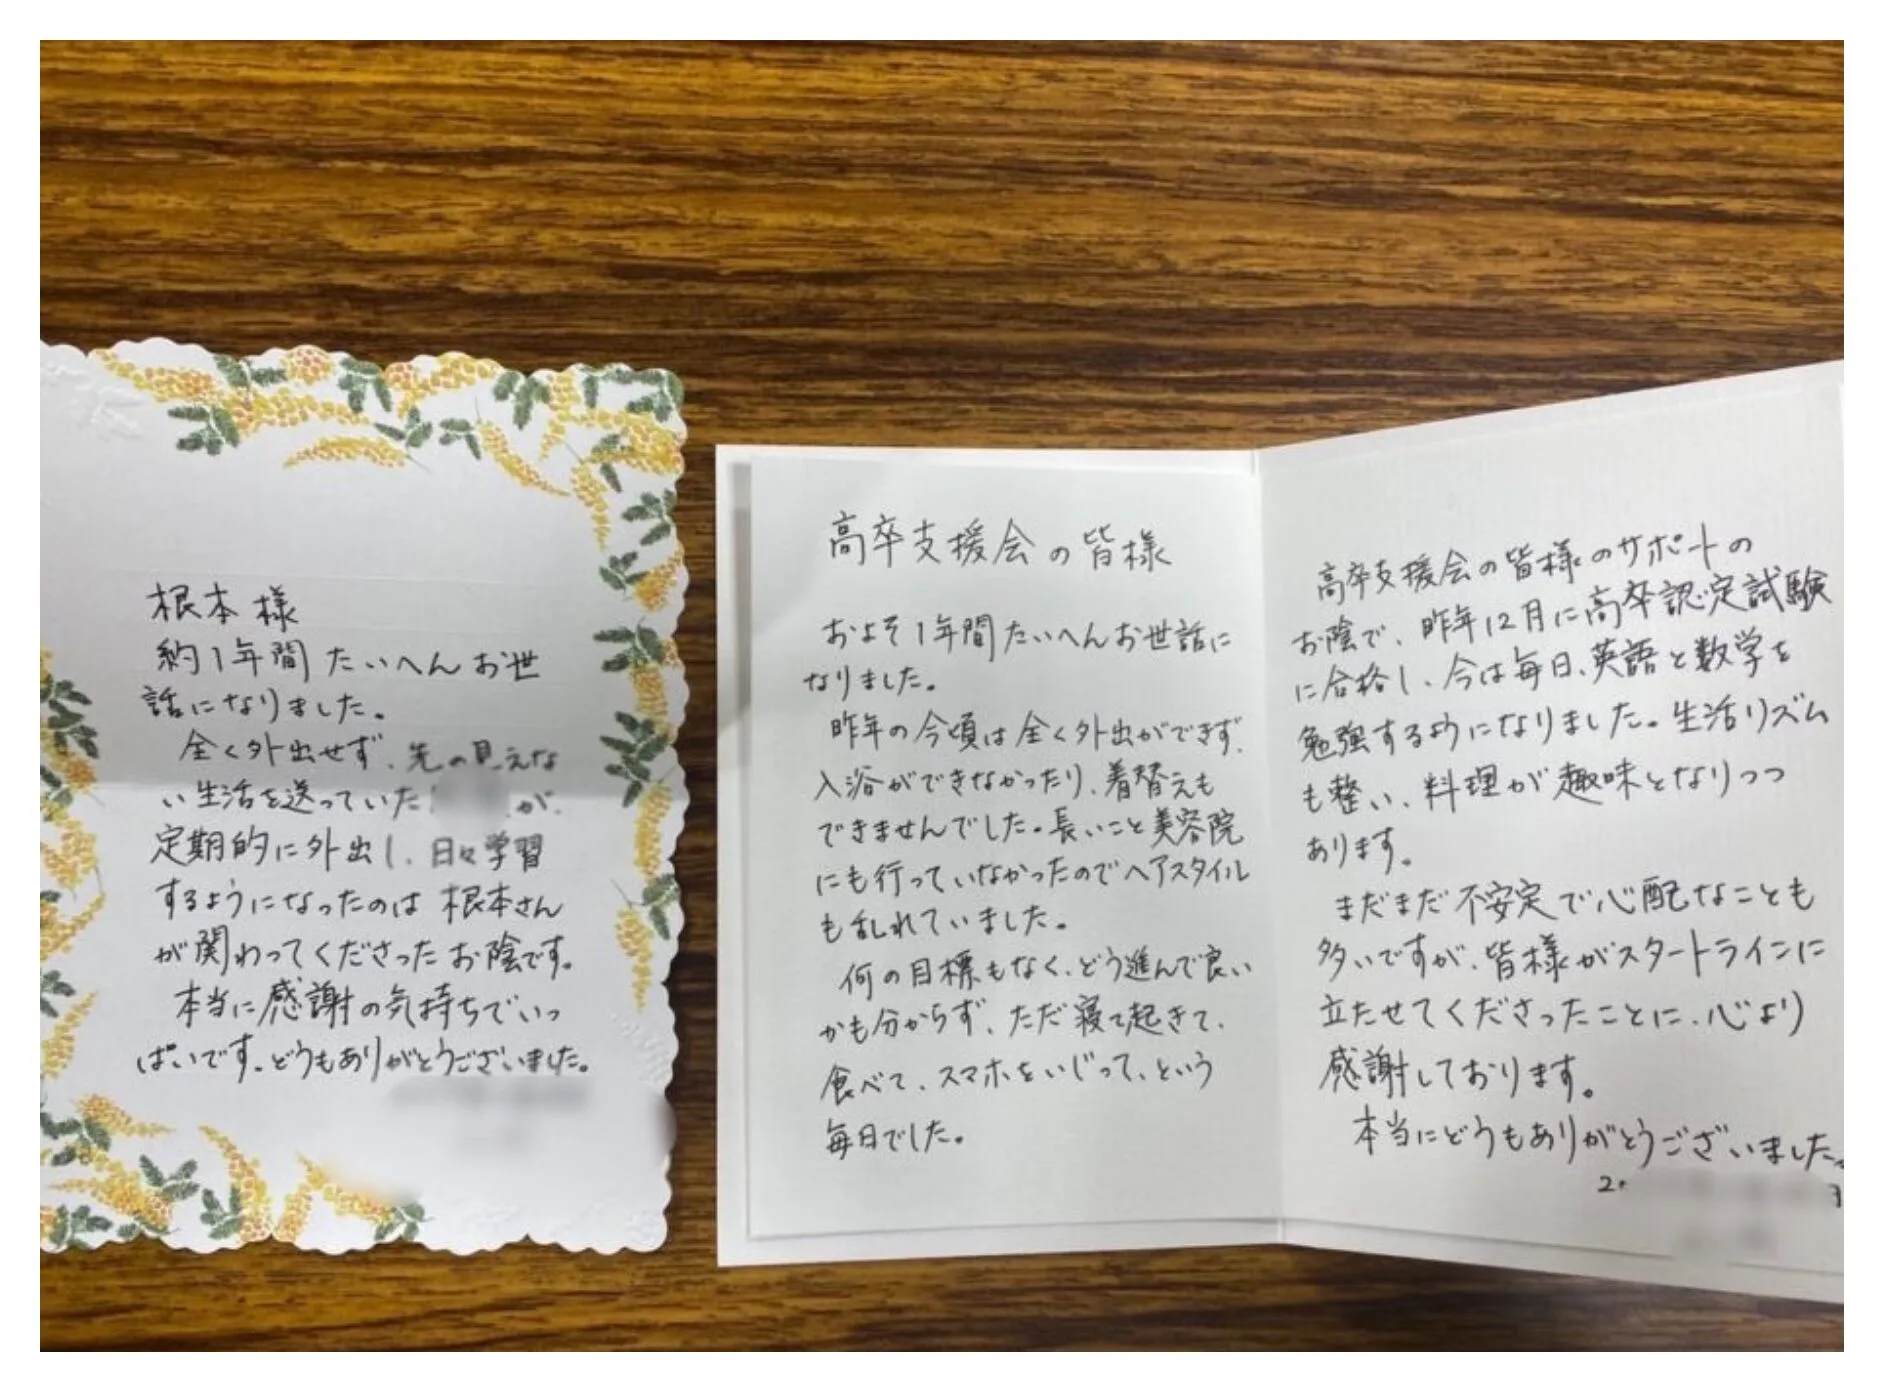 根本様
約1年間たいへんお世
話になりました。
全く外出せず、先の見えな
い生活を送っていた が、
定期的に外出し、日々学習
するようになったのは根本さん
が関わってくださったお陰です。
本当に感謝の気持ちでいっ
ぱいです。どうもありがとうございました。
高卒支援会の皆様
およそ1年間たいへんお世話に
なりました。
昨年の今頃は全く外出ができず、
入浴ができなかったり、着替えも
できませんでした。長いこと美容院
にも行っていなかったのでヘアスタイル
も乱れていました。
何の目標もなく、どう進んで良い
かも分からず、ただ寝て起きて、
食べて、スマホをいじって、という
毎日でした。
高卒支援会の皆様のサポートの
お陰で、昨年12月に高卒認定試験
に合格し、今は毎日、英語と数学を
勉強するようになりました。生活リズム
も整い、料理が趣味となりつつ
あります。
まだまだ不安定で心配なことも
多いですが、皆様がスタートラインに
立たせてくださったことに、心より
感謝しております。
本当にどうもありがとうございました。
2.